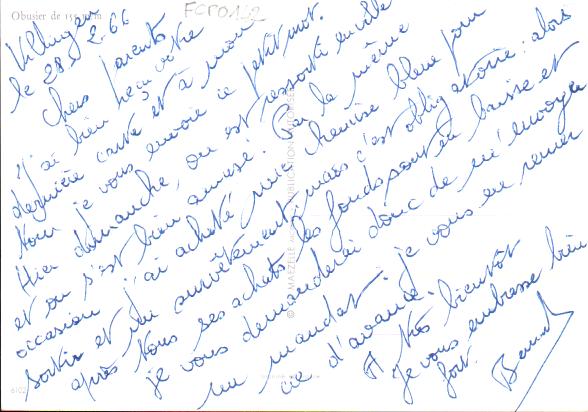 Obusier de 155 m/m
FCP0122
Villingen
le 28. 2. 66
Chers parents
J'ai bien reçu votre
dernière carte et à mon
tour je vous envoie ce petit mot.
Hier dimanche, on est ressorti en ville
et on s'est bien amusé. Par la même
occasion j'ai acheté une chemise bleue pour
sortir et un survêtement mais c'est obligatoire : alors
après tous ses achats les fonds sont en baisse et
je vous demanderai donc de m'envoyer
un mandat. je vous en remer
cie d'avance.
A très bientôt
Je vous embrasse bien
fort.
Bernard
6102